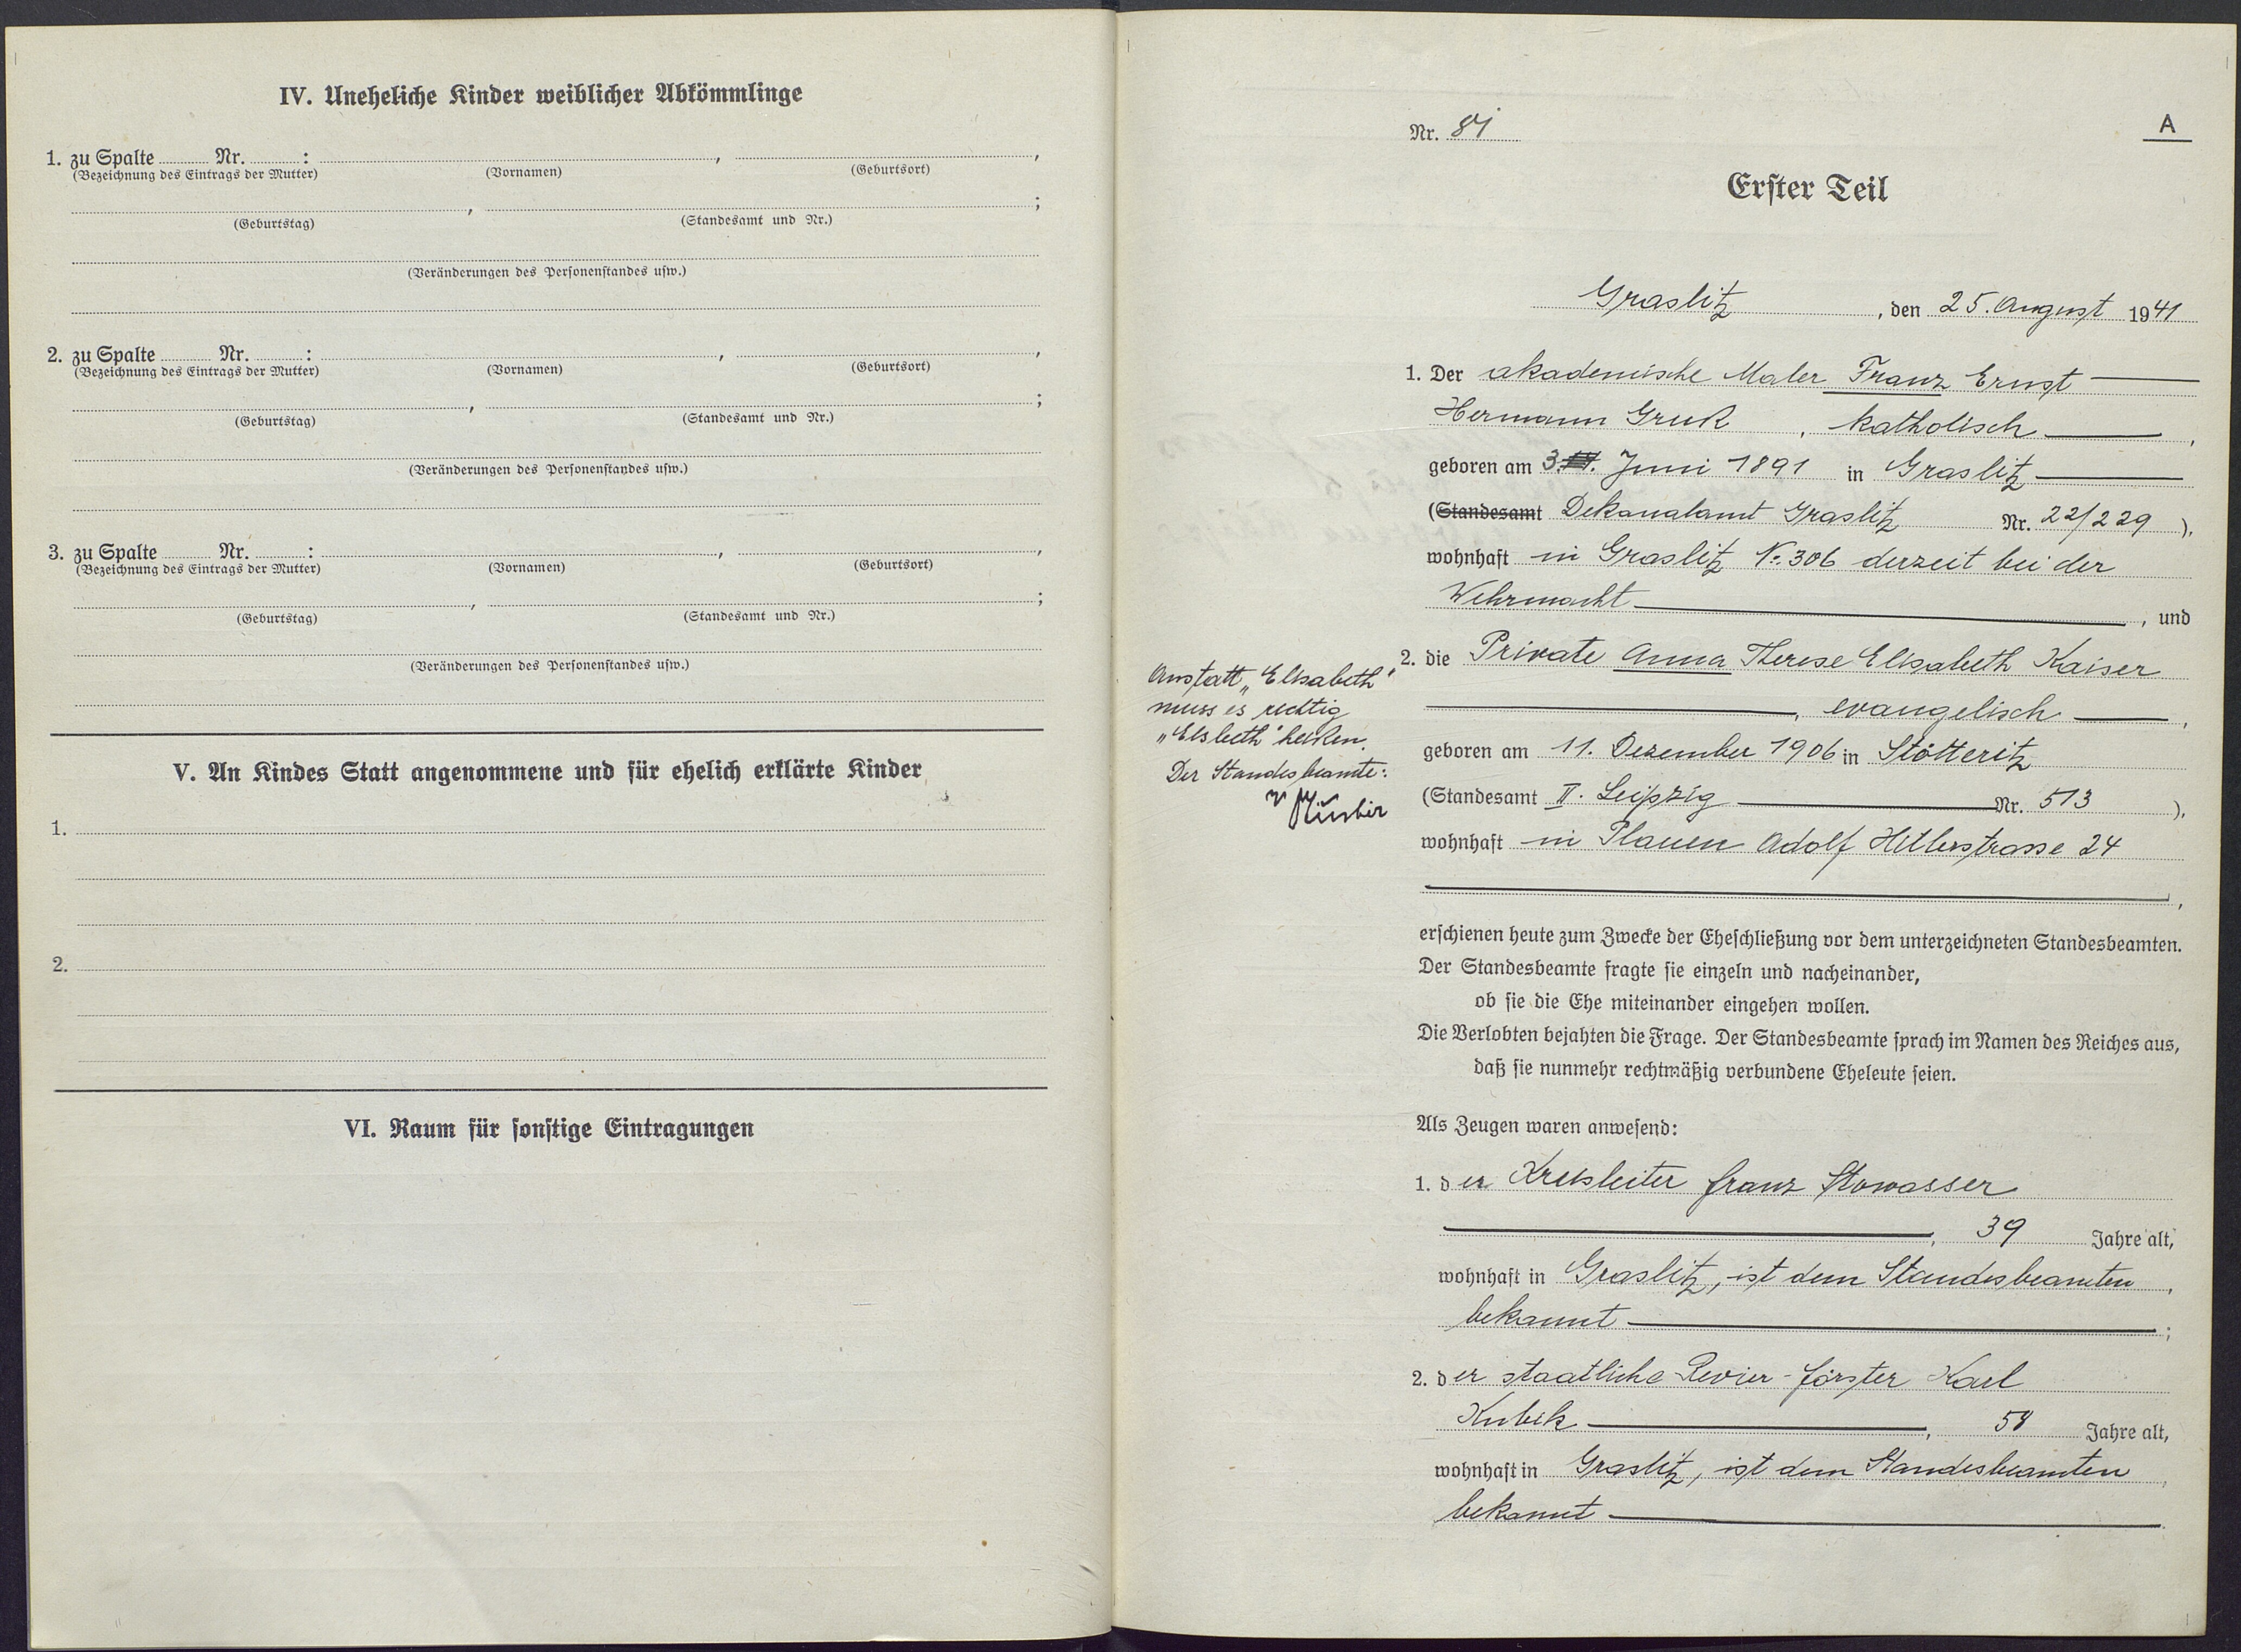 IV. Uneheliche Kinder weiblicher Abkömmlinge
1. zu Spalte Nr. : , ,
(Bezeichnung des Eintrags der Mutter) (Vornamen) (Geburtsort)
, ;
(Geburtstag) (Standesamt und Nr.)
(Veränderungen des Personenstandes usw.)
2. zu Spalte Nr. : , ,
(Bezeichnung des Eintrags der Mutter) (Vornamen) (Geburtsort)
, ;
(Geburtstag) (Standesamt und Nr.)
(Veränderungen des Personenstandes usw.)
3. zu Spalte Nr. : , ,
(Bezeichnung des Eintrags der Mutter) (Vornamen) (Geburtsort)
, ;
(Geburtstag) (Standesamt und Nr.)
(Veränderungen des Personenstandes usw.)
V. An Kindes Statt angenommene und für ehelich erklärte Kinder
1.
2.
VI. Raum für sonstige Eintragungen
Nr. 81
A
Erster Teil
Graslitz, den 25. August 1941
1. Der akademische Maler Franz Ernst
Hermann , katholisch ,
geboren am 3. Juni 1891 in Graslitz
(Standesamt Dekanalamt Graslitz Nr. 22/229 ),
wohnhaft in Graslitz No. 306 derzeit bei der
Wehrmacht , und
2. die Private Anna Therese Elisabeth Kaiser
, evangelisch ,
geboren am 11. Dezember 1906 in Stötteritz
(Standesamt II. Leipzig Nr. 513 ),
wohnhaft in Plauen Adolf Hitlerstrasse 24
,
Anstatt „Elisabeth"
muss es richtig
„Elsbeth" heißen.
Der Standesbeamte:
erschienen heute zum Zwecke der Eheschließung vor dem unterzeichneten Standesbeamten.
Der Standesbeamte fragte sie einzeln und nacheinander,
ob sie die Ehe miteinander eingehen wollen.
Die Verlobten bejahten die Frage. Der Standesbeamte sprach im Namen des Reiches aus,
daß sie nunmehr rechtmäßig verbundene Eheleute seien.
Als Zeugen waren anwesend:
1. der Kreisleiter Franz Stowasser
, 39 Jahre alt,
wohnhaft in Graslitz, ist dem Standesbeamten ,
bekannt ;
2. der staatliche Revier-förster Karl
Kubik , 58 Jahre alt,
wohnhaft in Graslitz, ist dem Standesbeamten ,
bekannt .